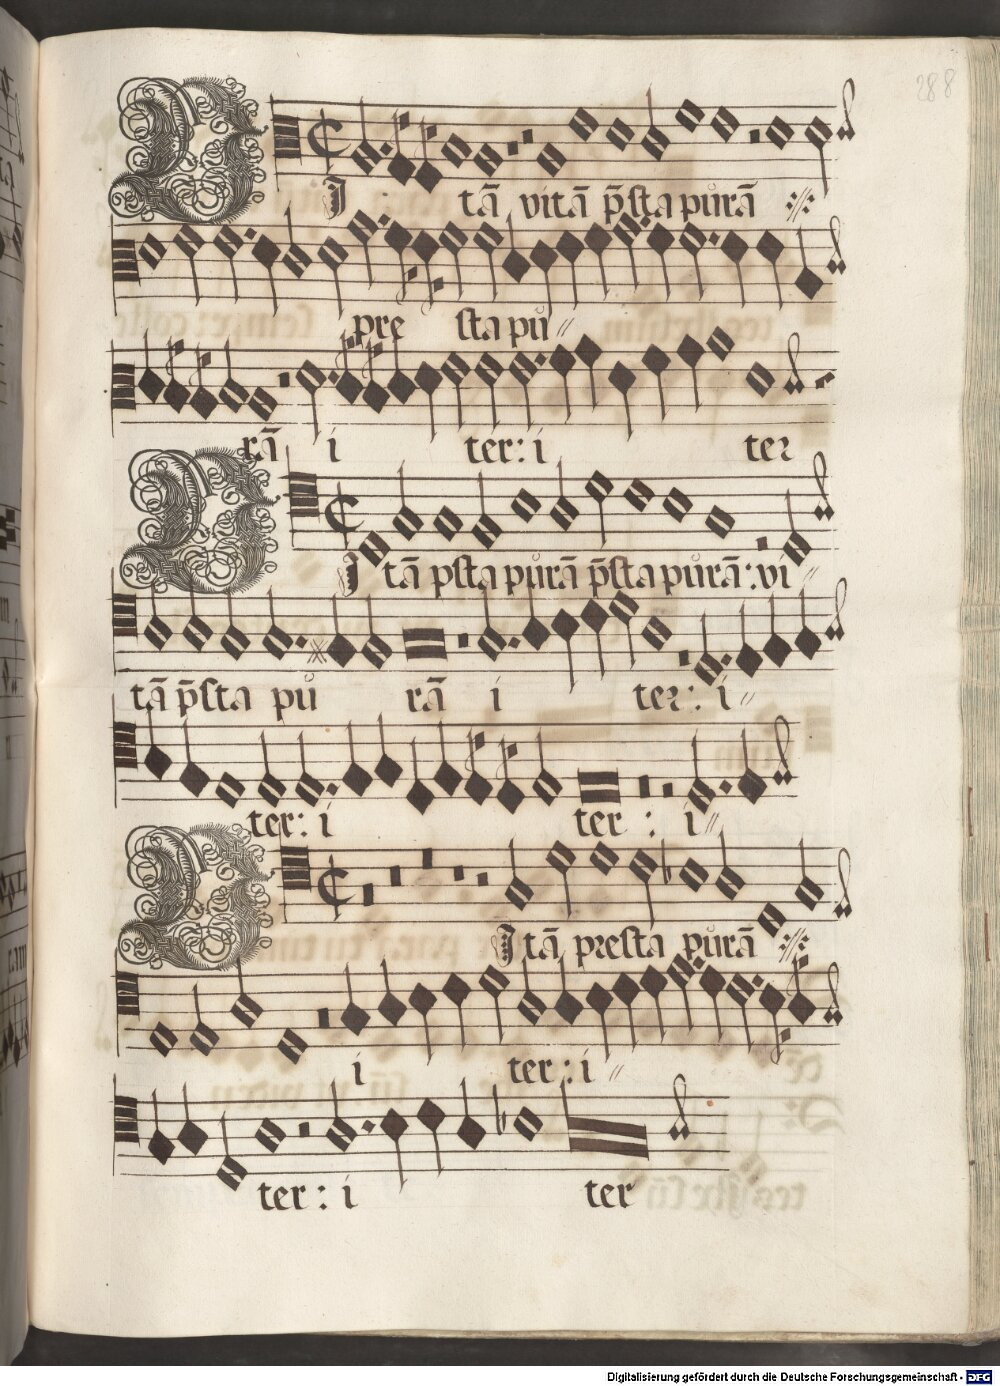 288
VI tā vitā p̄sta půrā
pre sta pů
rā i ter: i ter
VI tā psta půrā p̄sta půrā: vi
tā p̄sta pů rā i ter: i
ter: i ter : i
VI tā presta půrā
i ter: i
ter: i ter
Digitalisierung gefördert durch die Deutsche Forschungsgemeinschaft - DFG